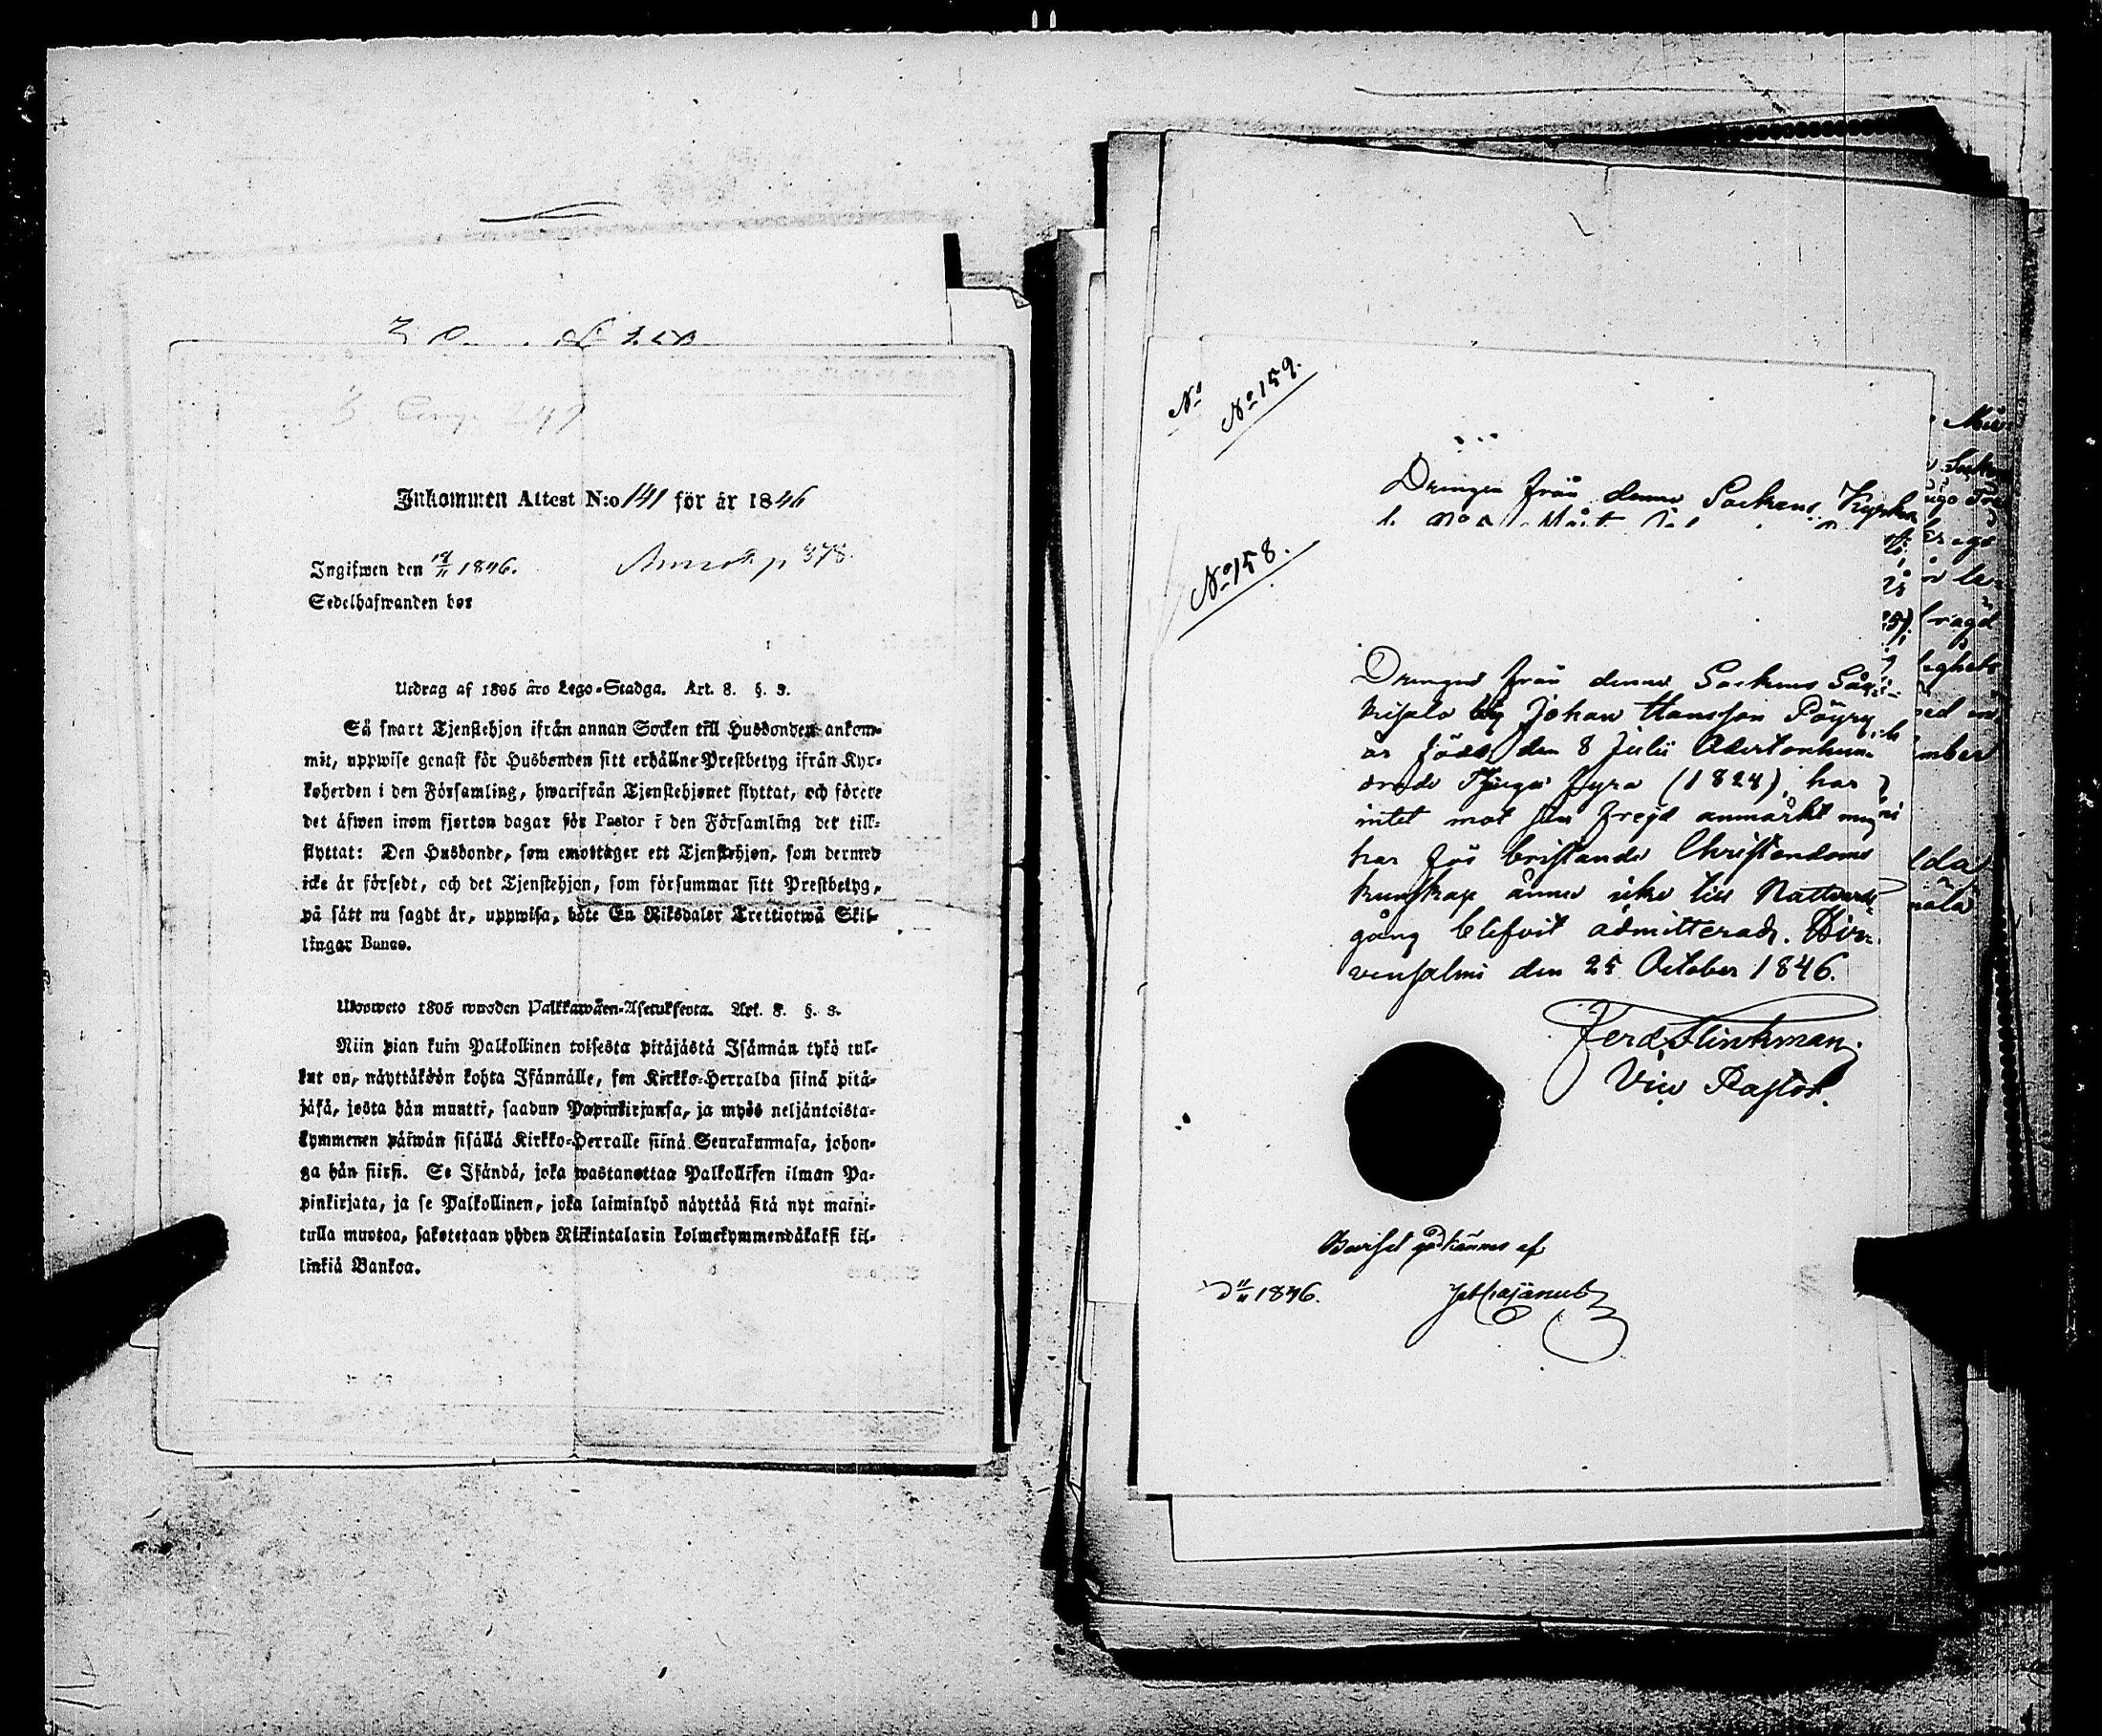 Inkommen Attest N:o 141 för år 1846
Ingifwen den 18/11 1846.
p 378.
Sedelhafwanden bor
Utdrag af 1805 års Lego-Stadga. Art. 8. §. 3.
Så snart Tjenstehjon ifrån annan Socken till Husbonden ankom-
mit, uppwise genast för Husbonden sitt erhållne Prestbetyg ifrån Kyr-
koherden i den Församling, hwarifrån Tjenstehjonet flyttat, och förete
det äfwen inom fjorton dagar för Pastor i den Församling det till-
flyttat: Den Husbonde, som emottager ett Tjenstehjon, som dermed
icke är försedt, och det Tjenstehjon, som försummar sitt Prestbetyg,
på sätt nu sagdt är, uppwisa, böte En Riksdaler Trettiotwå Skil-
lingar Banco.
Ulosweto 1805 wuoden Palkkawäen-Asetuksesta. Art. 8. §. 3.
Niin pian kuin Palkollinen toisesta pitäjästä Isännän tykö tul-
lut on, näyttäköön kohta Isännälle, sen Kirkko-Herralda siinä pitä-
jäsä, josta hän muutti, saadun Papinkirjansa, ja myös neljäntoista-
kymmenen päiwän sisällä Kirkko-Herralle siinä Seurakunnasa, johon-
ga hän siirsi. Se Isändä, joka wastanottaa Palkollisen ilman Pa-
pinkirjata, ja se Palkollinen, joka laiminlyö näyttää sitä nyt maini-
tulla muotoa, sakotetaan yhden Riikintalarin kolmekymmendäkaksi kil-
linkiä Bankoa.
No
No 159.
Drengen från denne Sockens Kyrko
No 158.
Drengen från denne Sockens
Johan Hansson Pöyry
är född den 8 Julii Adertonhun-
drade Tjugu fyra (1824), har
intet mot sin frejd anmärkt men
har för bristande Christendoms
kunskap ännu icke till Nattvards-
gång blifvit admitterad. Hir-
vensalmi den 25 October 1846.
Ferd. Flinkman
Vice Pastor.
Beviset godkännes af
d 11/11 1846.